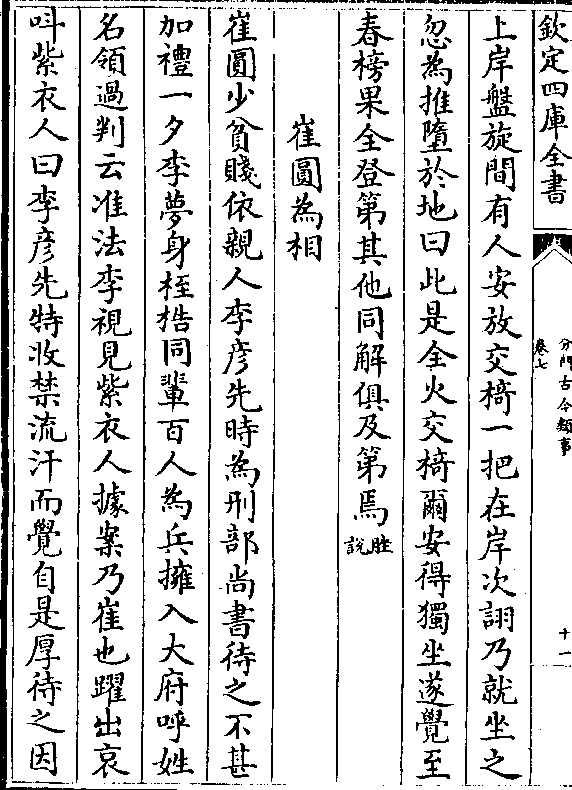 欽定四庫全書
分門古今類事
卷七
十一
上岸盤旋間有人安放交椅一把在岸次詡乃就坐之
忽為推墮於地曰此是全火交椅爾安得獨坐遂覺至
春榜果全登第其他同解俱及第焉
脞
說
崔圓為相
崔圓少貧賤依親人李彦先時為刑部尚書待之不甚
加禮一夕李夢身桎梏同輩百人為兵擁入大府呼姓
名領過判云准法李視見紫衣人據案乃崔也躍出哀
呌紫衣人曰李彦先特收禁流汗而覺自是厚待之因